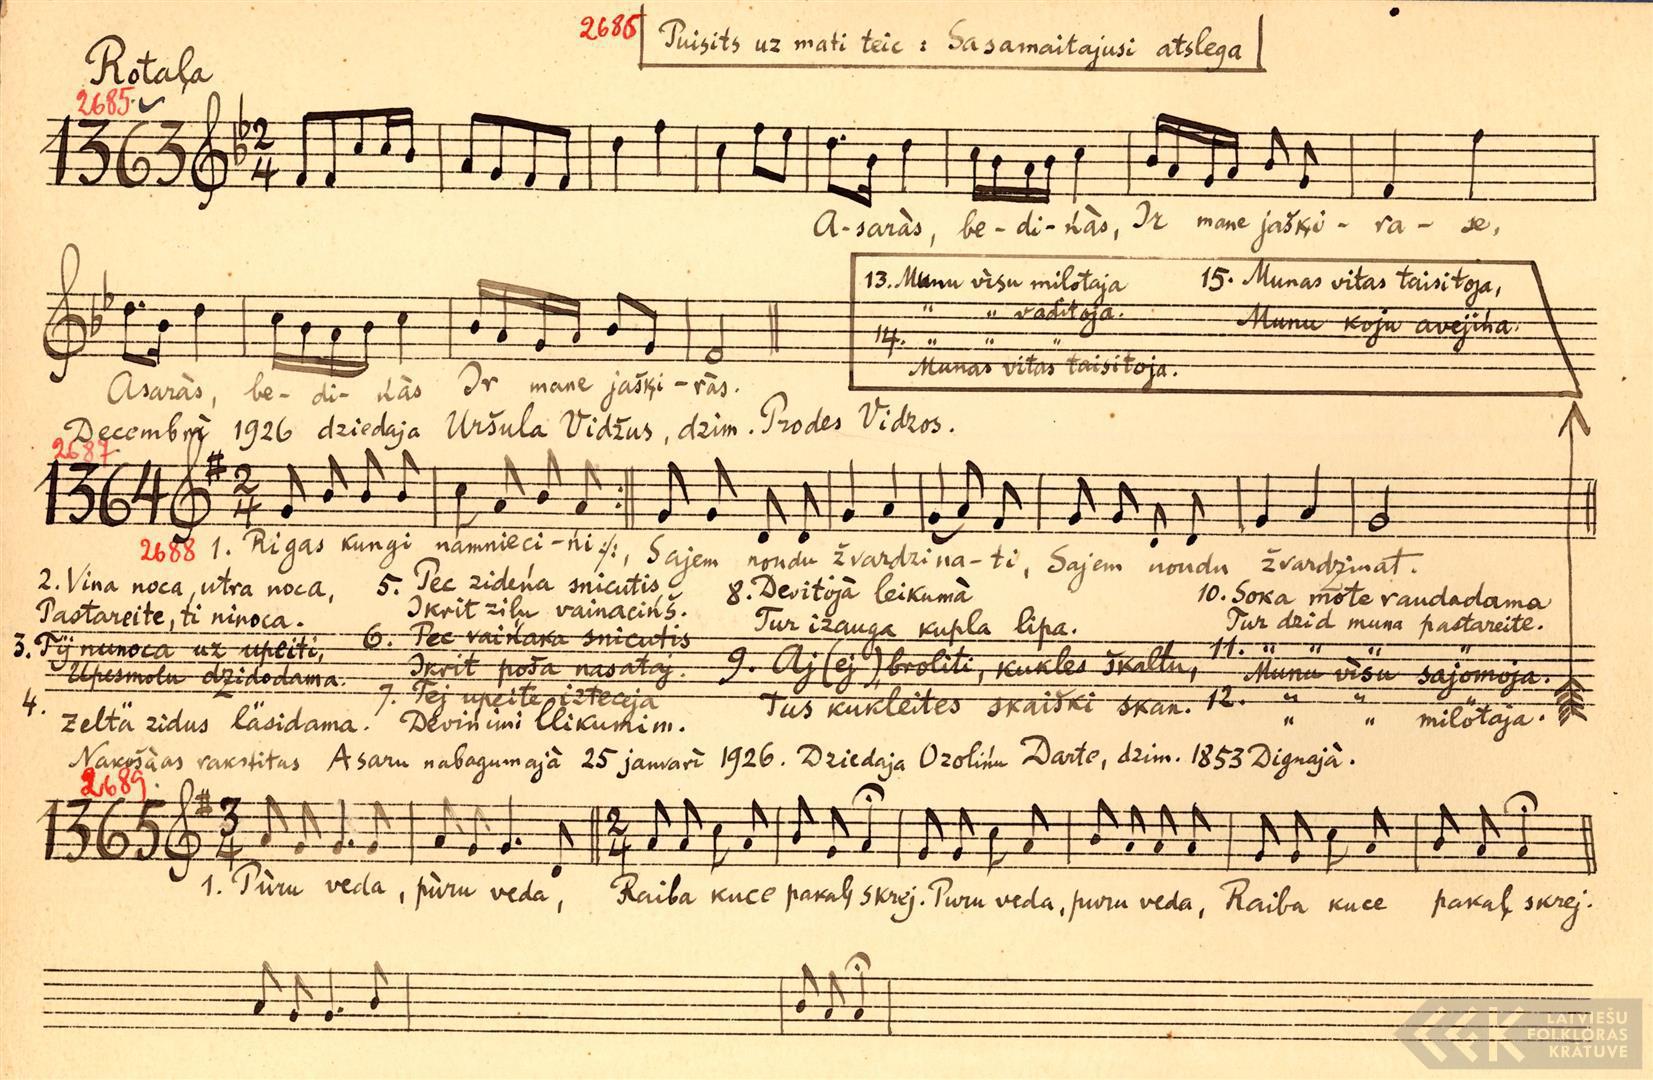 2686 Puisits uz mati teic : Sasamaitajusi atslega
Rotaļa
2685
1363 2 4
A-saràs, be-di-ńàs, Ir mane jašķi-ra-se,
13. Munu vìsu milotaja
" " vaditoja.
14. " " "
Munas vitas taisitoja.
15. Munas vitas taisitoja,
Munu koju avejińa.
Asaràs, be-di-ńàs Ir mane jašķi-ràs.
Decembrì 1926 dziedaja Uršula Vidžus, dzim. Prodes Vidzos.
2687
1364 2 4
2688 1. Rigas kungi namnieci-ńi :/:, Sajem nondu žvardzina-ti, Sajem nondu žvardzinat.
2. Vina noca, utra noca,
Pastareite, ti ninoca.
3. Tij nunoca uz upeiti,
Upesmolu dzidodama.
4.
Zeltä zidus läsidama.
5. Pec zideńa snicutis
Ikrit zilu vainacińš.
6. Pec vaińaka snicutis
Ikrit poša nasataj.
7. Tej upeite izteceja
Devinimi llikumim.
8. Devitòjà leikumà
Tur izauga kupla lipa.
9. Aj (ej), broliti, kukles škaltu,
Tus kukleites skaiški skan.
10. Soka mòte raudadama
Tur dzid muna pastareite.
11. " " " "
Munu vìsu sajomoja.
12. " "
" " milòtaja.
Nakošàas rakstitas Asaru nabagumajà 25 janvarì 1926. Dziedaja Ozolińu Darte, dzim. 1853 Dignajà.
2689
1365 3 4 2 4
1. Pùru veda, pùru veda, Raiba kuce pakaļ skrej. Puru veda, puru veda, Raiba kuce pakaļ skrej.
LATVIEŠU
FOLKLORAS
KRĀTUVE